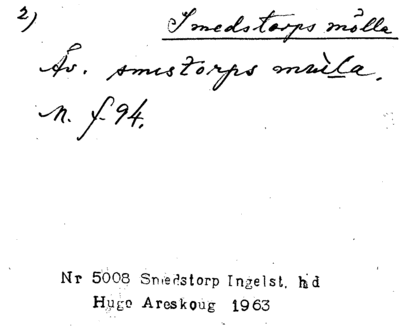 2) Smedstorps mölla
Äv. smɛstorps mɯ̀la.
M. f. 94.
Nr 5008 Smedstorp Ingelst. hd
Hugo Areskoug 1963